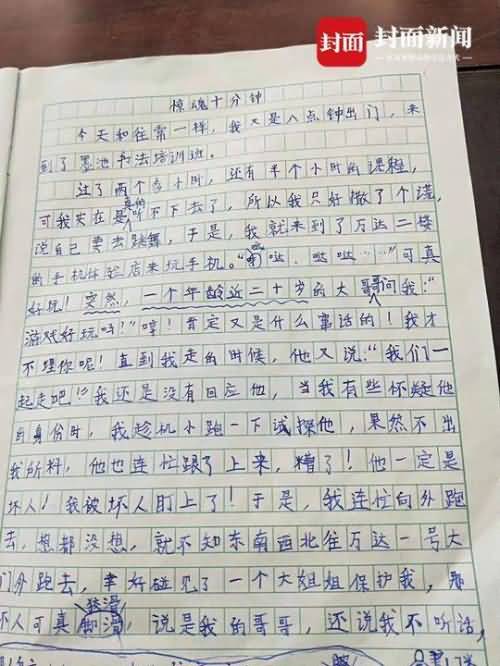 封面 封面新闻
惊魂十分钟
今天和往常一样，我又是八点钟出门，来
到了墨池书法培训班。
过了两个多小时，还有半个小时的课程，
可我实在是真的听不下去了，所以我只好撒了个谎，
说自己要去跳舞，于是，我就来到了万达二楼
的手机体验店来玩手机。“哒哒、哒哒……”可真
好玩！突然，一个年龄近二十岁的大哥哥问我：“
游戏好玩吗？”哼！肯定又是什么事话的！我才
不理你呢！直到我走的时候，他又说：“我们一
起走吧！”我还是没有回应他，当我有些怀疑他
的身份时，我趁机小跑一下试探他，果然不出
我所料，他也连忙跟了上来，糟了！他一定是
坏人！我被坏人盯上了！于是，我连忙向外跑
去，想都没想，就不知东南西北往万达一号大
门外跑去，幸好碰见了一个大姐姐保护我，那
坏人可真狡滑，说是我的哥哥，还说我不听话，